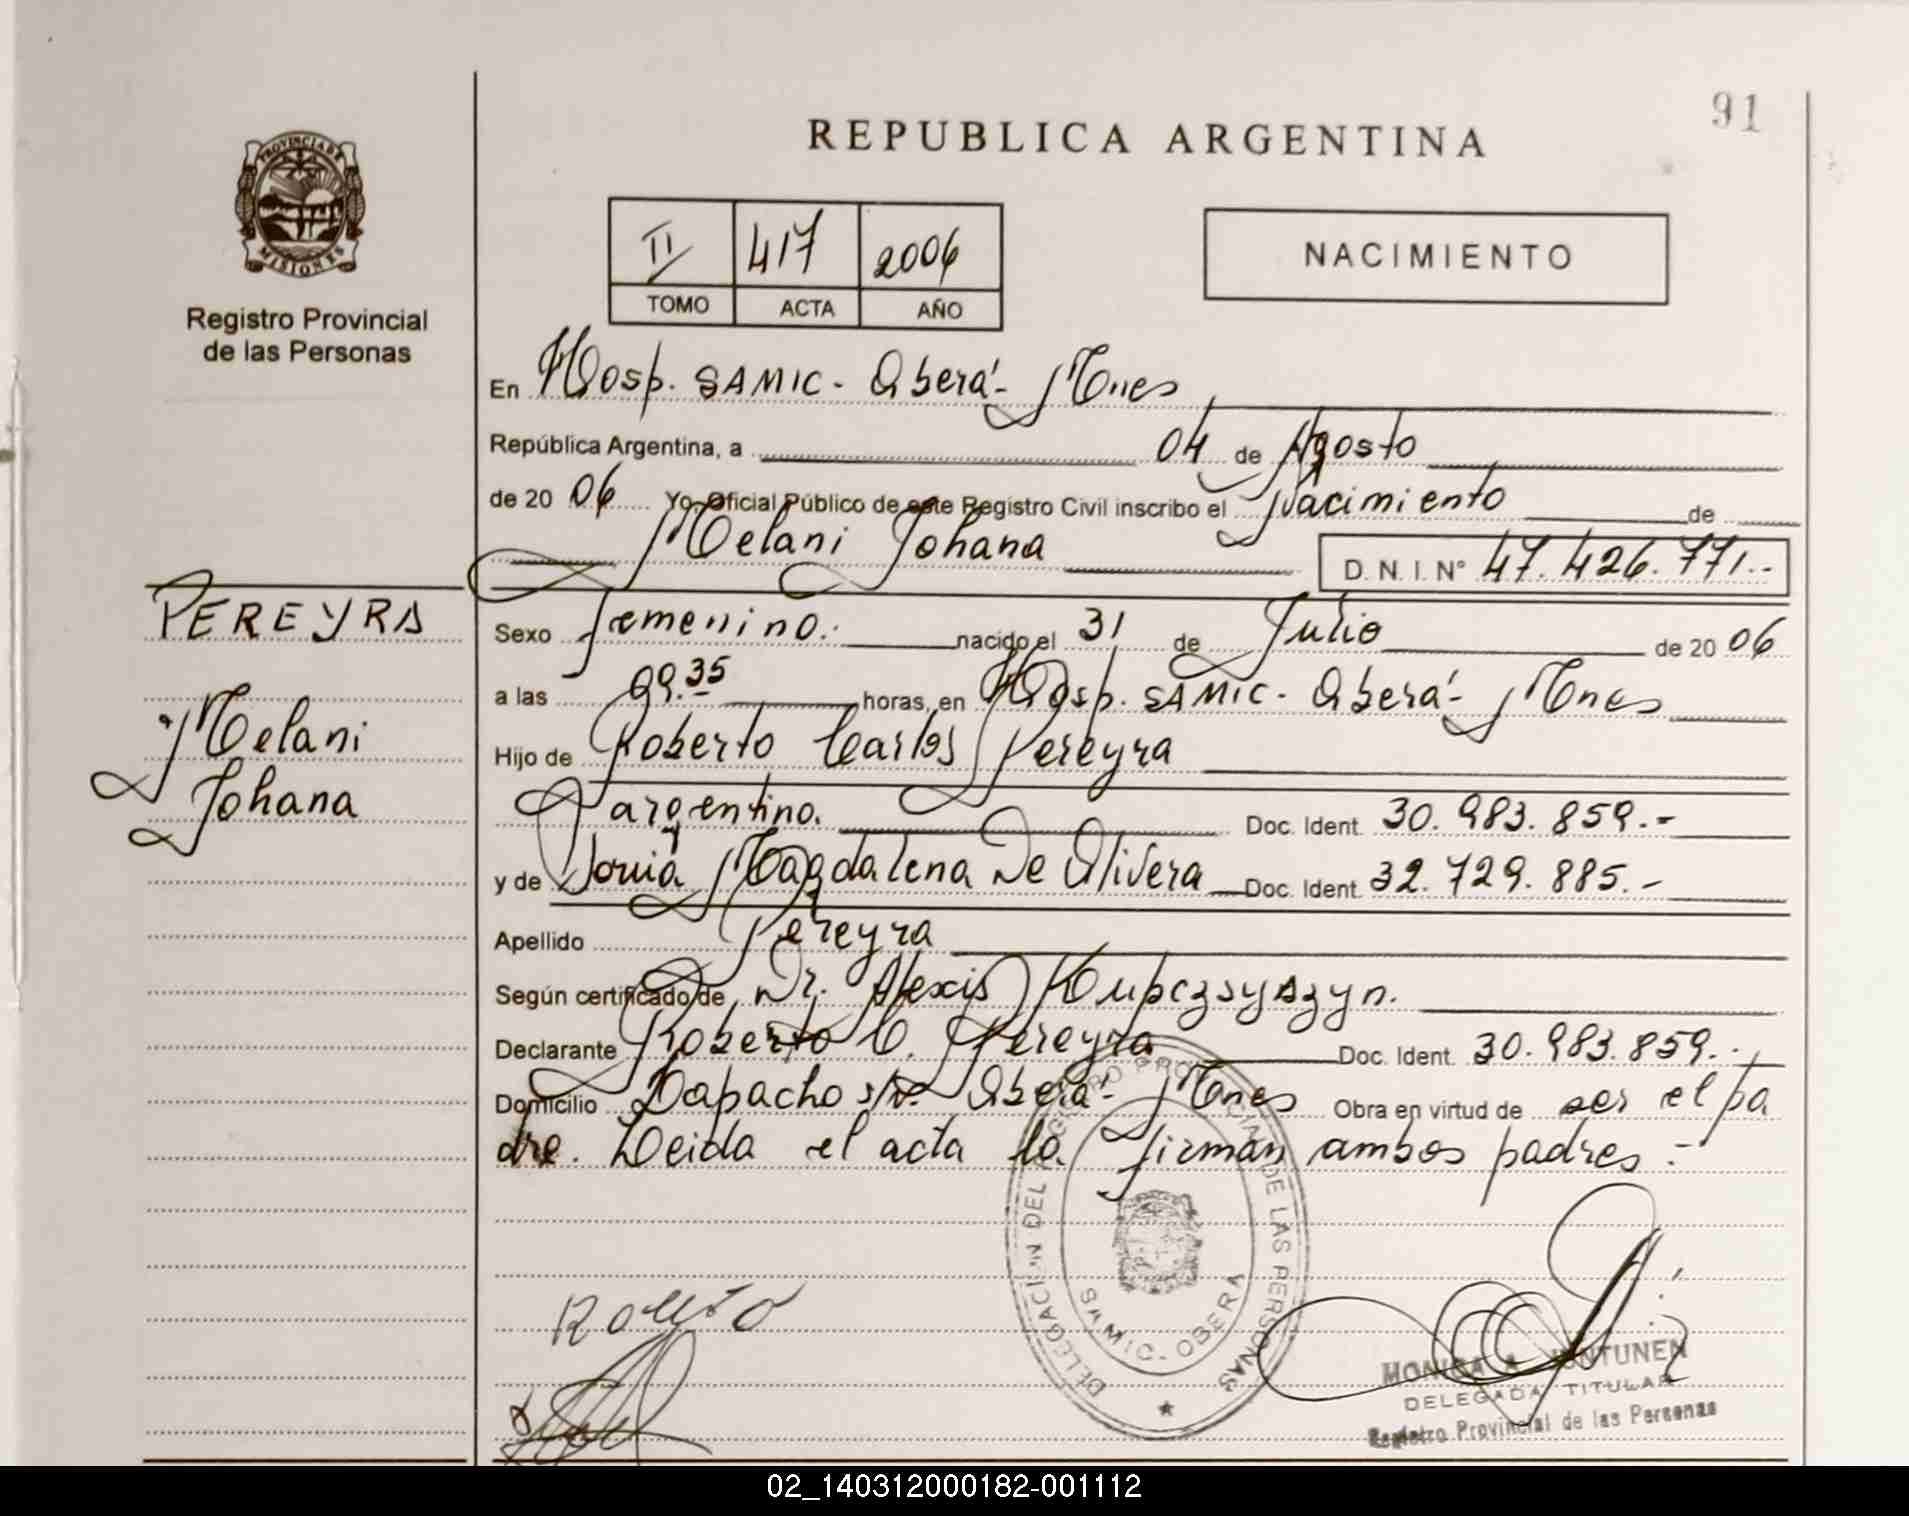 91
REPUBLICA ARGENTINA
PROVINCIA DE
MISIONES
Registro Provincial
de las Personas
II 417 2006
TOMO ACTA AÑO
NACIMIENTO
En Hosp. SAMIC - Oberá - Mnes
República Argentina, a 04 de Agosto
de 20 06 Yo, Oficial Público de este Registro Civil inscribo el Nacimiento de
Melani Johana D. N. I. N° 47.426.771.-
PEREYRA
Melani
Johana
Sexo femenino. nacido el 31 de Julio de 20 06
a las 09.35 horas, en Hosp. SAMIC - Oberá - Mnes
Hijo de Roberto Carlos Pereyra
argentino. Doc. Ident. 30.983.859.-
y de Sonia Magdalena De Olivera Doc. Ident. 32.729.885.-
Apellido Pereyra
Según certificado de Dr. Alexis
Declarante Roberto C. Pereyra Doc. Ident. 30.983.859.-
Domicilio Lapacho s/n. Oberá - Mnes Obra en virtud de ser el pa
dre. Leida el acta la firman ambos padres.-
DELEGACION DEL REGISTRO PROVINCIAL DE LAS PERSONAS
SAMIC - OBERA
MONICA A. JUNTUNEN
DELEGADA TITULAR
Registro Provincial de las Personas
02_140312000182-001112